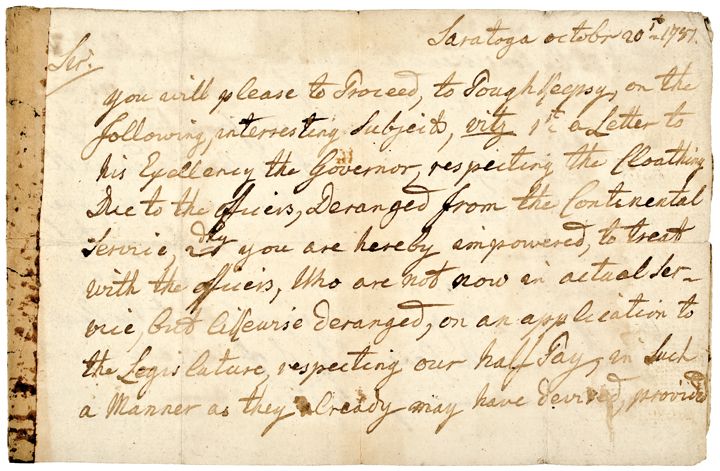 Saratoga octobr 20th 1781.
Sir.
you will please to Proceed, to Poughkeepsy, on the
following, interresting Subjects, vitz 1st a Letter to
his Exellency the Governor, respecting the Cloathing
Due to the officers, Deranged from the Continental
Service, 2dly you are hereby impowered, to treat
with the officers, Who are not now in actual Ser-
vice, but likewise deranged, on an application to
the Legislature, respecting our half Pay, in Such
a Manner as they already may have devised, provided